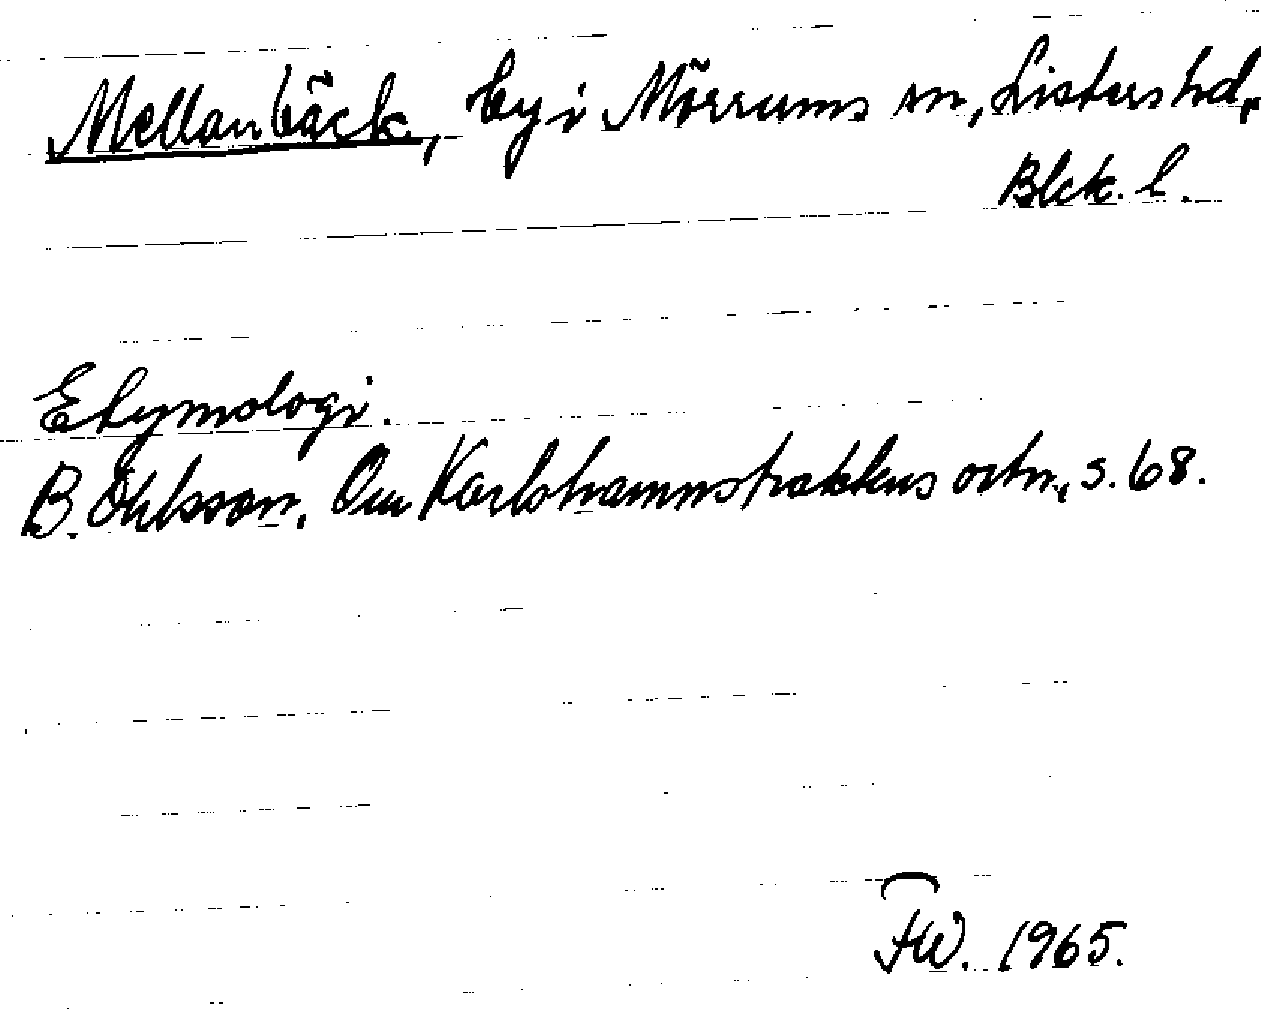 Mellanbäck, by i Mörrums sn, Listers hd,
Blek. l.
Etymologi.
B. Ohlsson, Om Karlshamnstraktens ortn., s. 68.
FW. 1965.